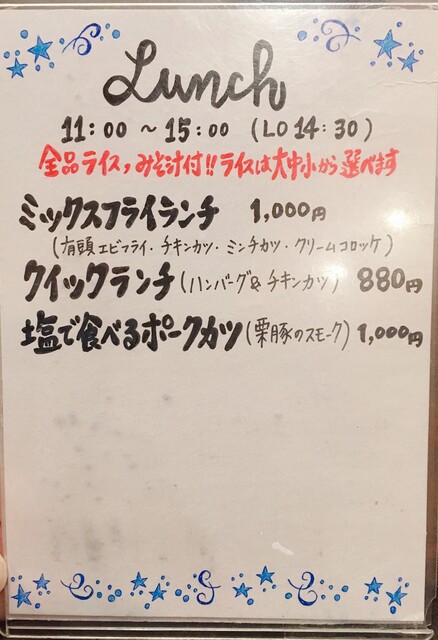 Lunch
11:00 ~ 15:00 (LO 14:30)
全品ライス、みそ汁付!! ライスは大中小から選べます
ミックスフライランチ 1,000円
(有頭エビフライ・チキンカツ・ミンチカツ・クリームコロッケ)
クイックランチ(ハンバーグ&チキンカツ) 880円
塩で食べるポークカツ(栗豚のスモーク) 1,000円